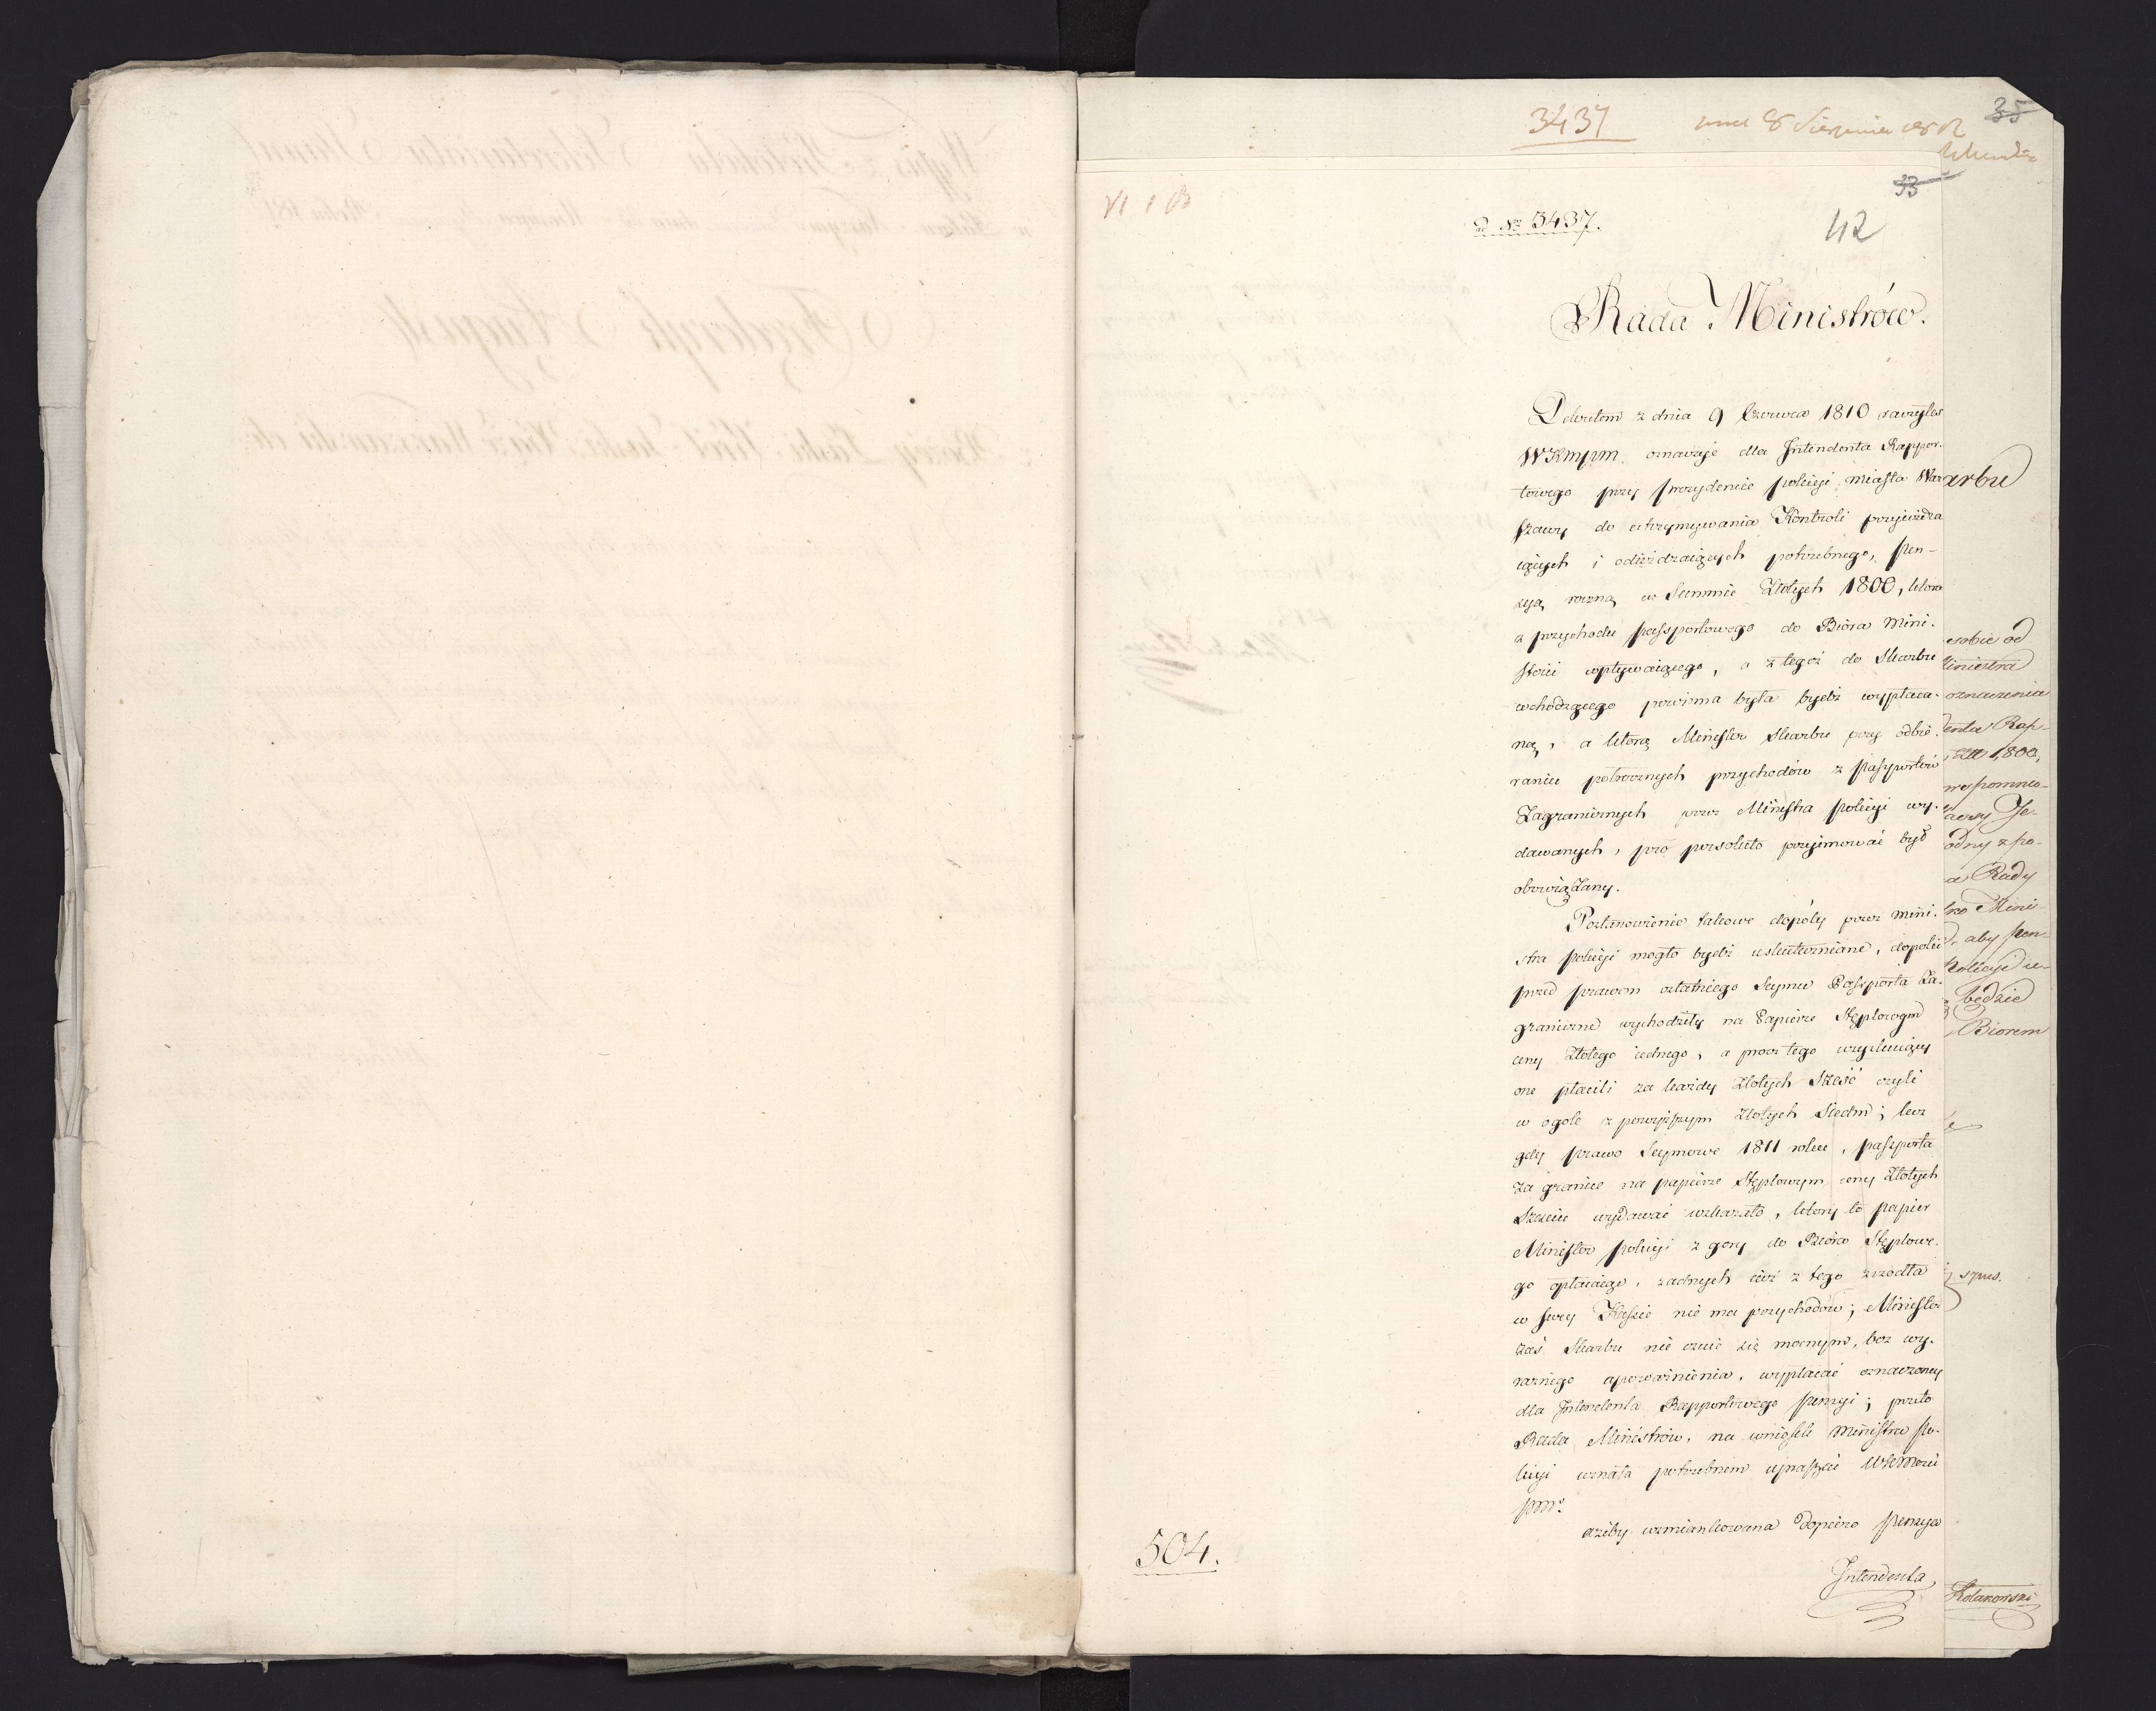 3437
35
33
VI 1 B
ad No 3437.
42
Rada Ministrów.
Dekretem z dnia 9 Czerwca 1810 raczyłeś
WKMPM. oznaczyć dla Intendenta Rappor-
towego przy prezydencie policyi miasta War
szawy do utrzymywania Kontroli przyieżdża
iących i odieżdzaiących potrzebnego, pen-
syą roczną w Summie Złotych 1800, ktora
z przychodu passportowego do Bióra Mini-
sterii wpływaiącego, a z tegoż do Skarbu
wchodzącego powinna była bydź wypłaca-
ną, a ktorą Minister Skarbu przy odbie-
raniu potrocznych przychodów z passportów
Zagranicznych przez Ministra policyi wy-
dawanych, pro persoluto przyimować był
obowiązany.
Postanowienie takowe dopóty przez Mini-
stra policyi mogło bydź uskuteczniane, dopoki
przed prawem ostatniego Seymu Passporta Za-
graniczne wychodziły na Papierze Stęplowym
ceny Złotego iednego, a procz tego uzyskuiący
one płacili za każdy Złotych Sześć czyli
w ogole z powyższym Złotych Siedm; lecz
gdy prawo Seymowe 1811 roku, passporta
za granice na papierze Stęplowym ceny Złotych
Sześciu wydawać wskazało, ktory to papier
Minister policyi z gory do Bióra Stęplowe-
go opłacaiąc, żadnych iuż z tego źrzodła
w swey Kassie nie ma przychodów; Minister
zaś Skarbu nie czuie się mocnym, bez wy-
raźnego upoważnienia, wypłacać oznaczoney
dla Intendenta Rapportowego pensyi; przeto
Rada Ministrów, na wniosek Ministra po-
licyi uznała potrzebnem upraszać WKMości
PMo
ażeby wzmiankowana dopiero pensya
Intendenta
504.
arbu
esobie od
Ministra
oznaczenia
denta Rap-
Zł 1,800,
wspomnio-
odny z po-
a Rady
ko Mini-
aby pen-
Policyi ie-
będzie
Biorem
Kolakowski